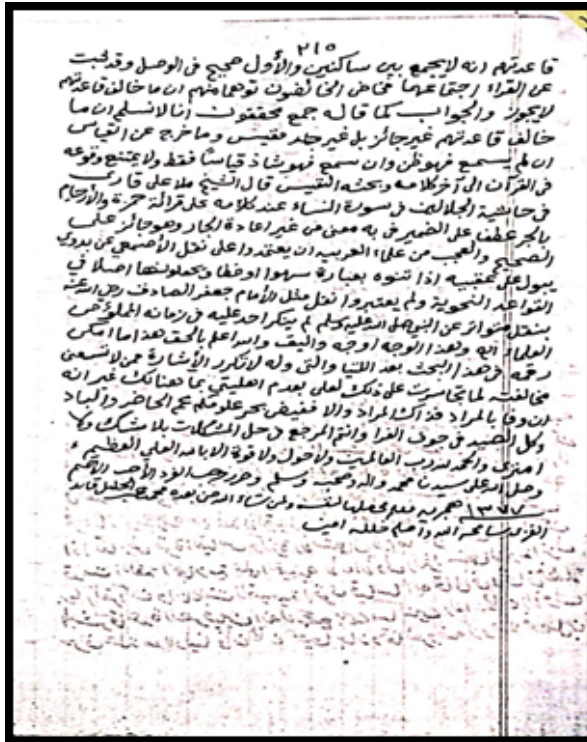 ٢١٥
قاعدتهم انه لا يجمع بين ساكنين والأول صحيح في الوصل وقد ثبت
عن القراء اجتماعهما فخاض الخائضون توهما منهم ان ما خالف قاعدتهم
لا يجوز والجواب كما قاله جمع محققون انا لا نسلم ان ما
خالف قاعدتهم غير جائز بل غير مقيس وما خرج عن القياس
ان لم يسمع فهو ظن وان سمع فهو شاذ قياسا فقط ولا يمتنع وقوعه
في القرآن الى آخر كلامه وبحثه النفيس قال الشيخ ملا على قارى
في حاشية الجلالين في سورة النساء عند كلامه على قرائة حمزة والأرحام
بالجر عطفا على الضمير في به معنى من غير اعادة الجار وهو جائز على
الصحيح والعجب من علماء العربيه ان يعتمدوا على نقل الأصمعي عن بدوي
يبول على عقبيه اذا تفوه بعبارة سهوا او خطا ويجعلونها اصلا في
القواعد النحوية ولم يعتبروا نقل مثل الأمام جعفر الصادق رضى الله عنه
بنقل متواتر عن النبي صلى الله عليه وسلم لم ينكر احد عليه في زمانه
العلماء اليه وهذا الوجه اوجه واليق والله اعلم بالحق هذا ما امكن
رقمه في هذا البحث بعد اللتيا والتى وله لا تكرر الأشارة ممن لا تسعنى
مخالفته لما تجاسرت على ذلك لعلمى بعدم اهليتى بما هنالك غير انه
ان وفا بالمراد فذاك المراد والا ففيض بحر علومكم عم الحاضر والباد
وكل الصيد في جوف الفرا وانتم المرجع في حل المشكلات بلا شك ولا
امترى والحمد لله رب العالمين ولا حول ولا قوة الا بالله العلى العظيم
وصلى الله على سيدنا محمد واله وصحبه وسلم
١٣٧٧ هجريه
سامحه الله واصلح خلله امين